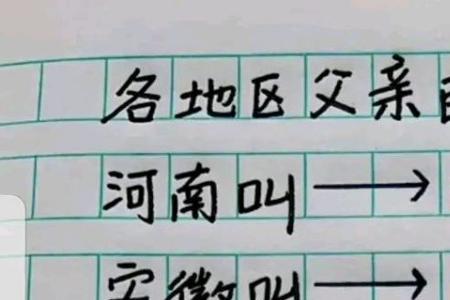 各地区父亲
河南叫→
安徽叫→